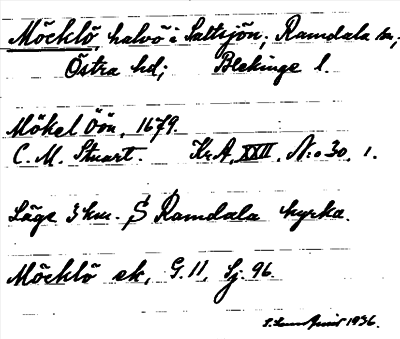 Möcklö, halvö i Saltsjön, Ramdala sn,
Östra hd; Blekinge l.
Mökel Öön, 1679.
C. M. Stuart. Kr.A. XXII, N:o 30, 1.
Läge 3 km. S Ramdala kyrka.
Möcklö ek, G. 11, Sj. 96.
1936.